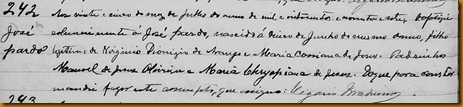 242 Aos vinte e cinco do mez de Julho do anno de mil e oitocentos e noventa e sete, Baptizei
José solemnemente a José pardo, nascido á de Junho do mesmo anno, filho
pardo legitimo de Virginio Dionizio de Araujo e Maria de Jesus. Padrinhos
Manoel de Jesus Oliveira e Maria Chryspiana de Jesus. Do que para constar
mandei fazer este assento, que assigno. Vigario
243